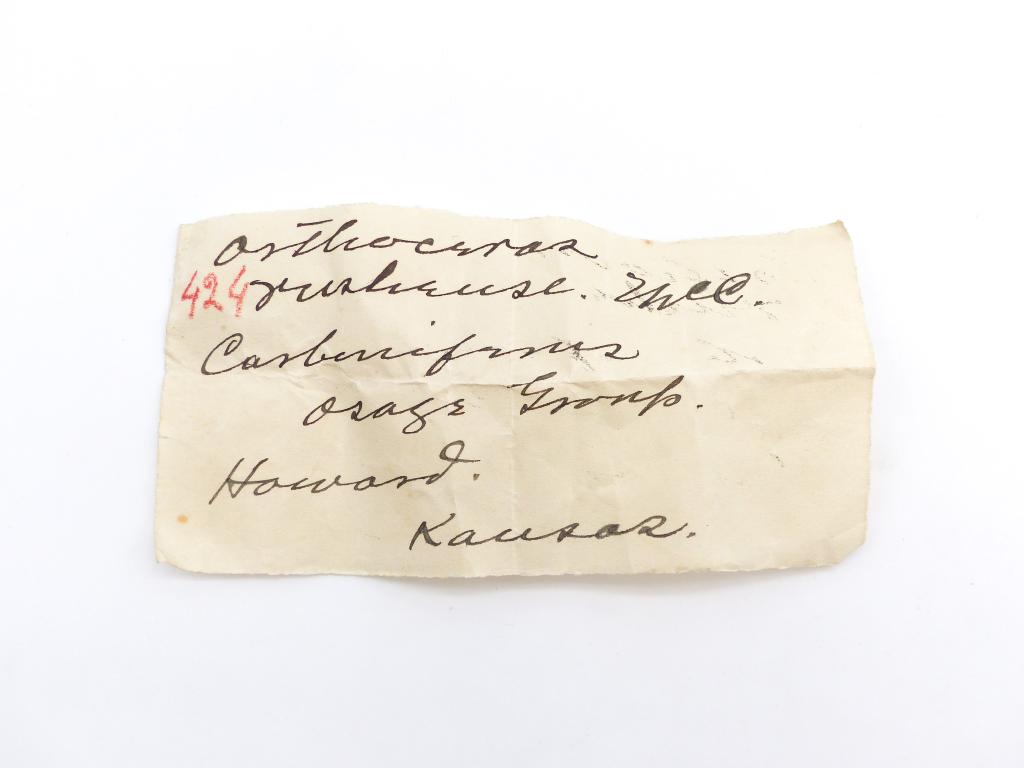 Orthoceras
424 rushense. McC.
Carboniferous
Osage Group.
Howard.
Kansas.